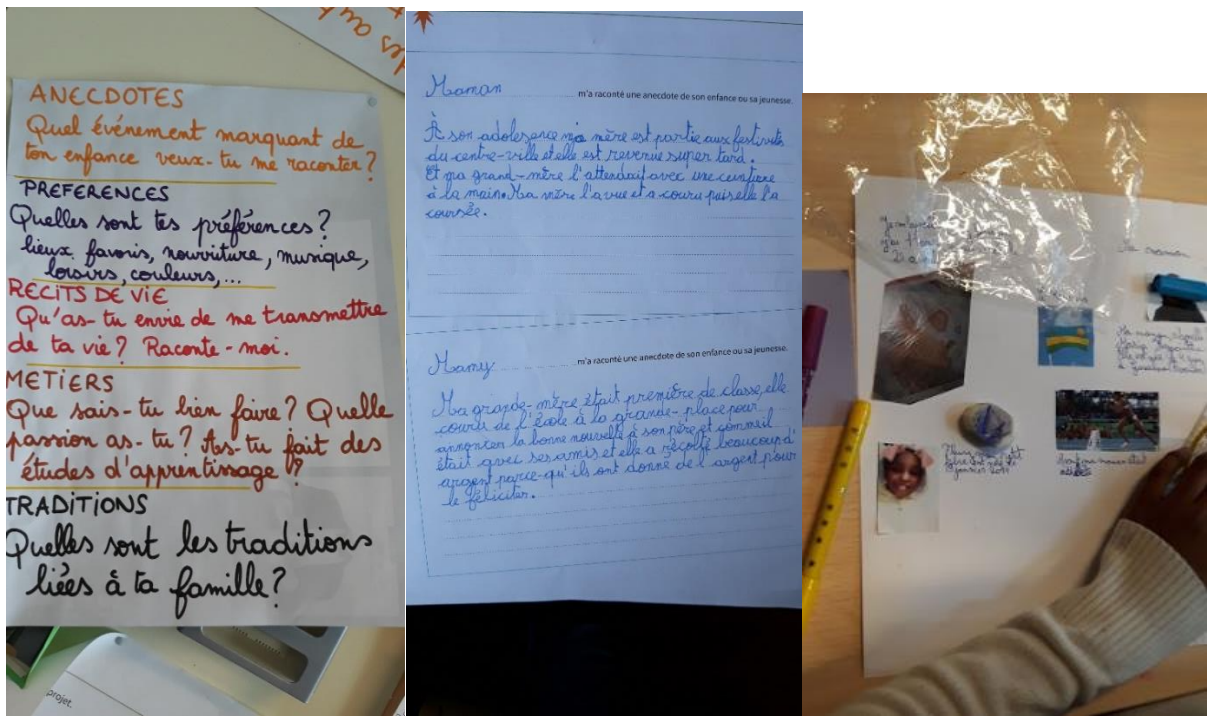 ANECDOTES
Quel événement marquant de
ton enfance veux-tu me raconter?
PREFERENCES
Quelles sont tes préférences?
lieux favoris, nourriture, musique,
loisirs, couleurs,...
RECITS DE VIE
Qu'as-tu envie de me transmettre
de ta vie? Raconte-moi.
METIERS
Que sais-tu bien faire? Quelle
passion as-tu? As-tu fait des
études d'apprentissage?
TRADITIONS
Quelles sont les traditions
liées à ta famille?
projet.
Maman m'a raconté une anecdote de son enfance ou sa jeunesse.
À son adolezence ma mère est partie aux festivités
du centre-ville et elle est revenue super tard.
Et ma grand-mère l'attendait avec une ceinture
à la main. Ma mère l'a vue et a couru puis elle l'a
coursée.
Mamy m'a raconté une anecdote de son enfance ou sa jeunesse.
Ma grande-mère était première de classe, elle
couris de l'école à la grande-place pour
annoncer la bonne nouvelle à son père et comme il
était avec ses amis et elle a récolté beaucoup d'
argent parce-qu'ils ont donné de l'argent pour
le féliciter.
Ma maman